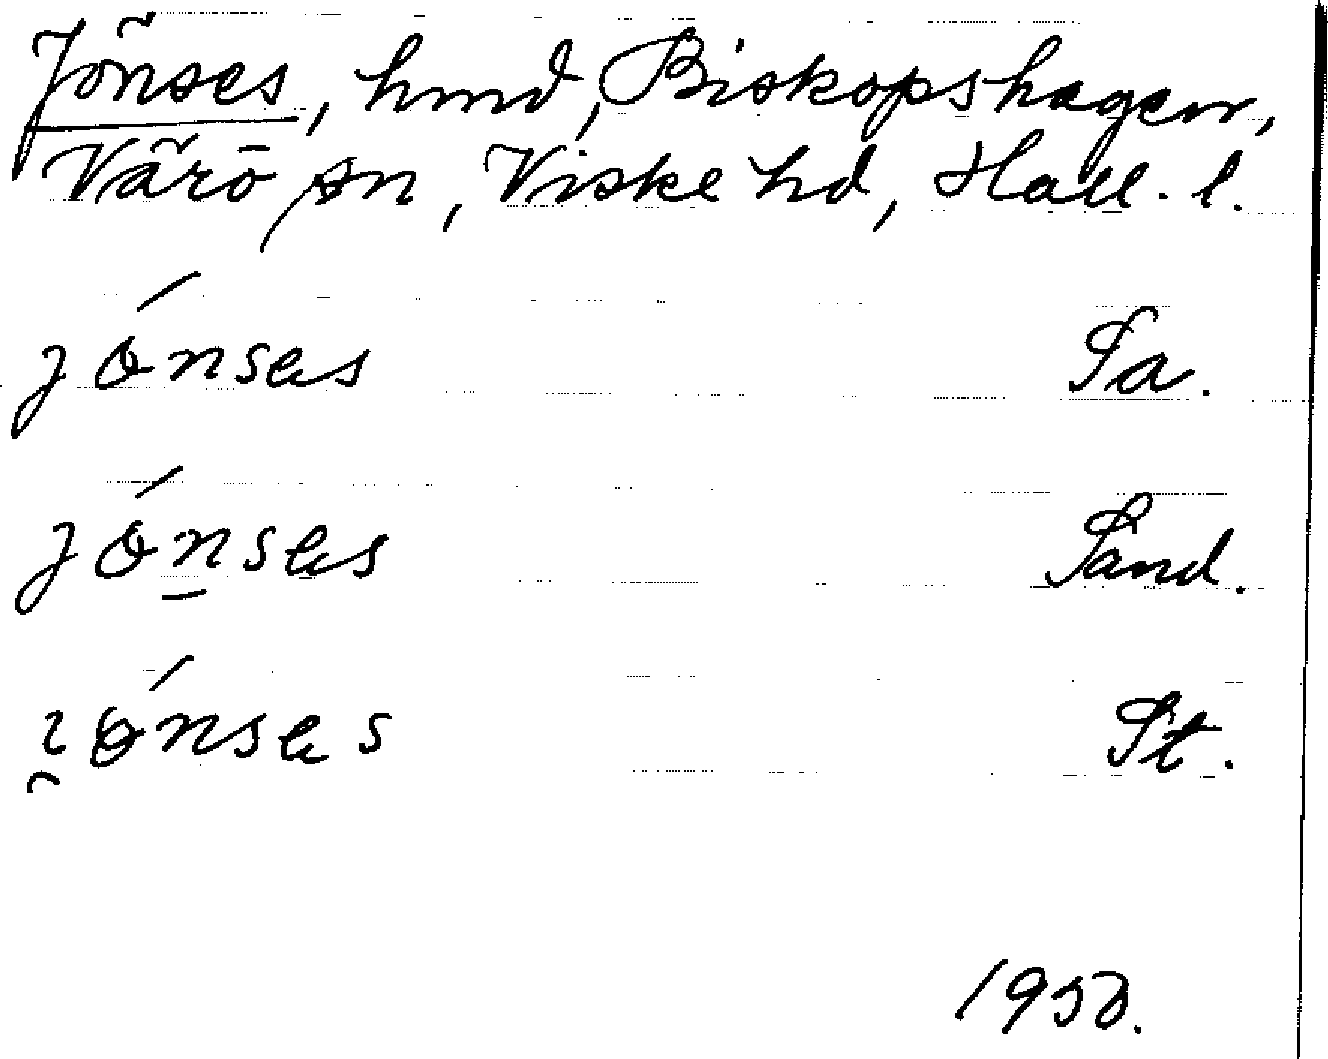 Jönses, hmd, Biskopshagen,
Värö sn, Viske hd, Hall. l.
jönsəs Sa.
jönsəs Sand.
ı̯önsəs St.
1950.